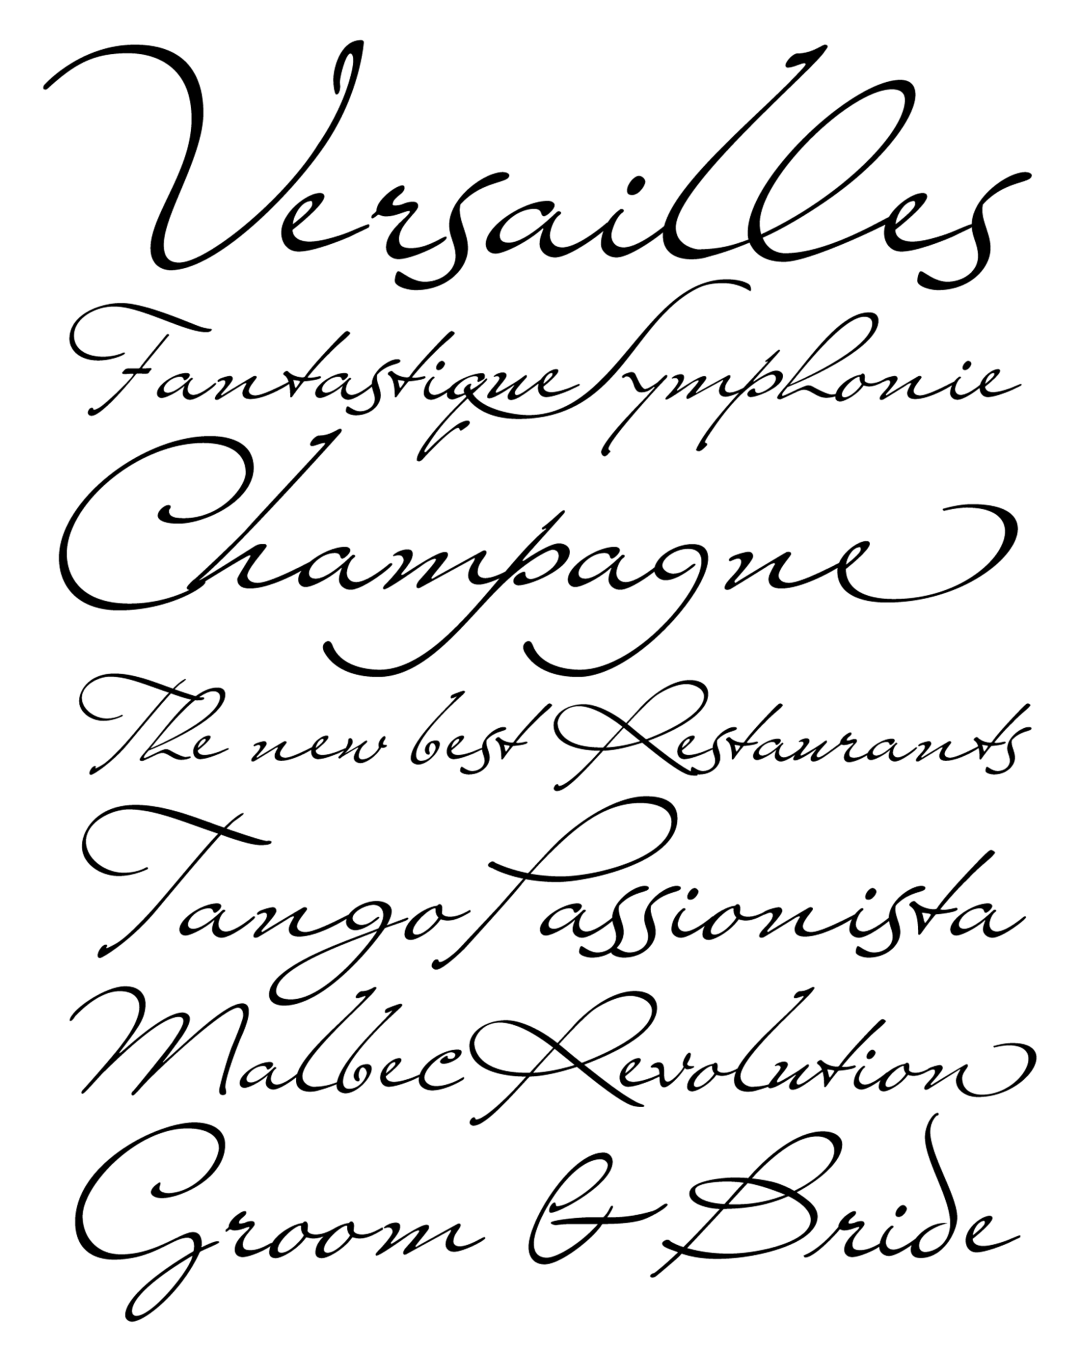 Versailles
Fantastique Symphonie
Champagne
The new best Restaurants
Tango Passionista
Malbec Revolution
Groom & Bride